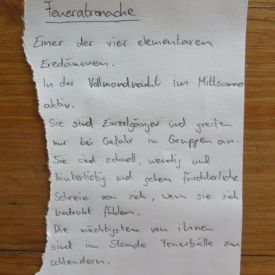 Feueratronache
Einer der vier elementaren
Erzdämonen.
In der Vollmondnacht im Mittsommer
aktiv.
Sie sind Einzelgänger und greifen
nur bei Gefahr in Gruppen an.
Sie sind schnell, wendig und
hinterlistig und geben fürchterliche
Schreie von sich, wenn sie sich
bedroht fühlen.
Die mächtigsten von ihnen
sind im Stande Feuerbälle zu
schleudern.